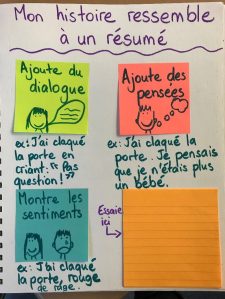 Mon histoire ressemble
à un résumé
Ajoute du
dialogue
ex: J'ai claqué
la porte en
criant: « Pas
question! »
Ajoute des
pensées
ex: J'ai claqué la
porte... Je pensais
que je n'étais plus
un bébé.
Montre les
sentiments
ex: J'ai claqué
la porte, rouge
de rage.
Essaie
ici